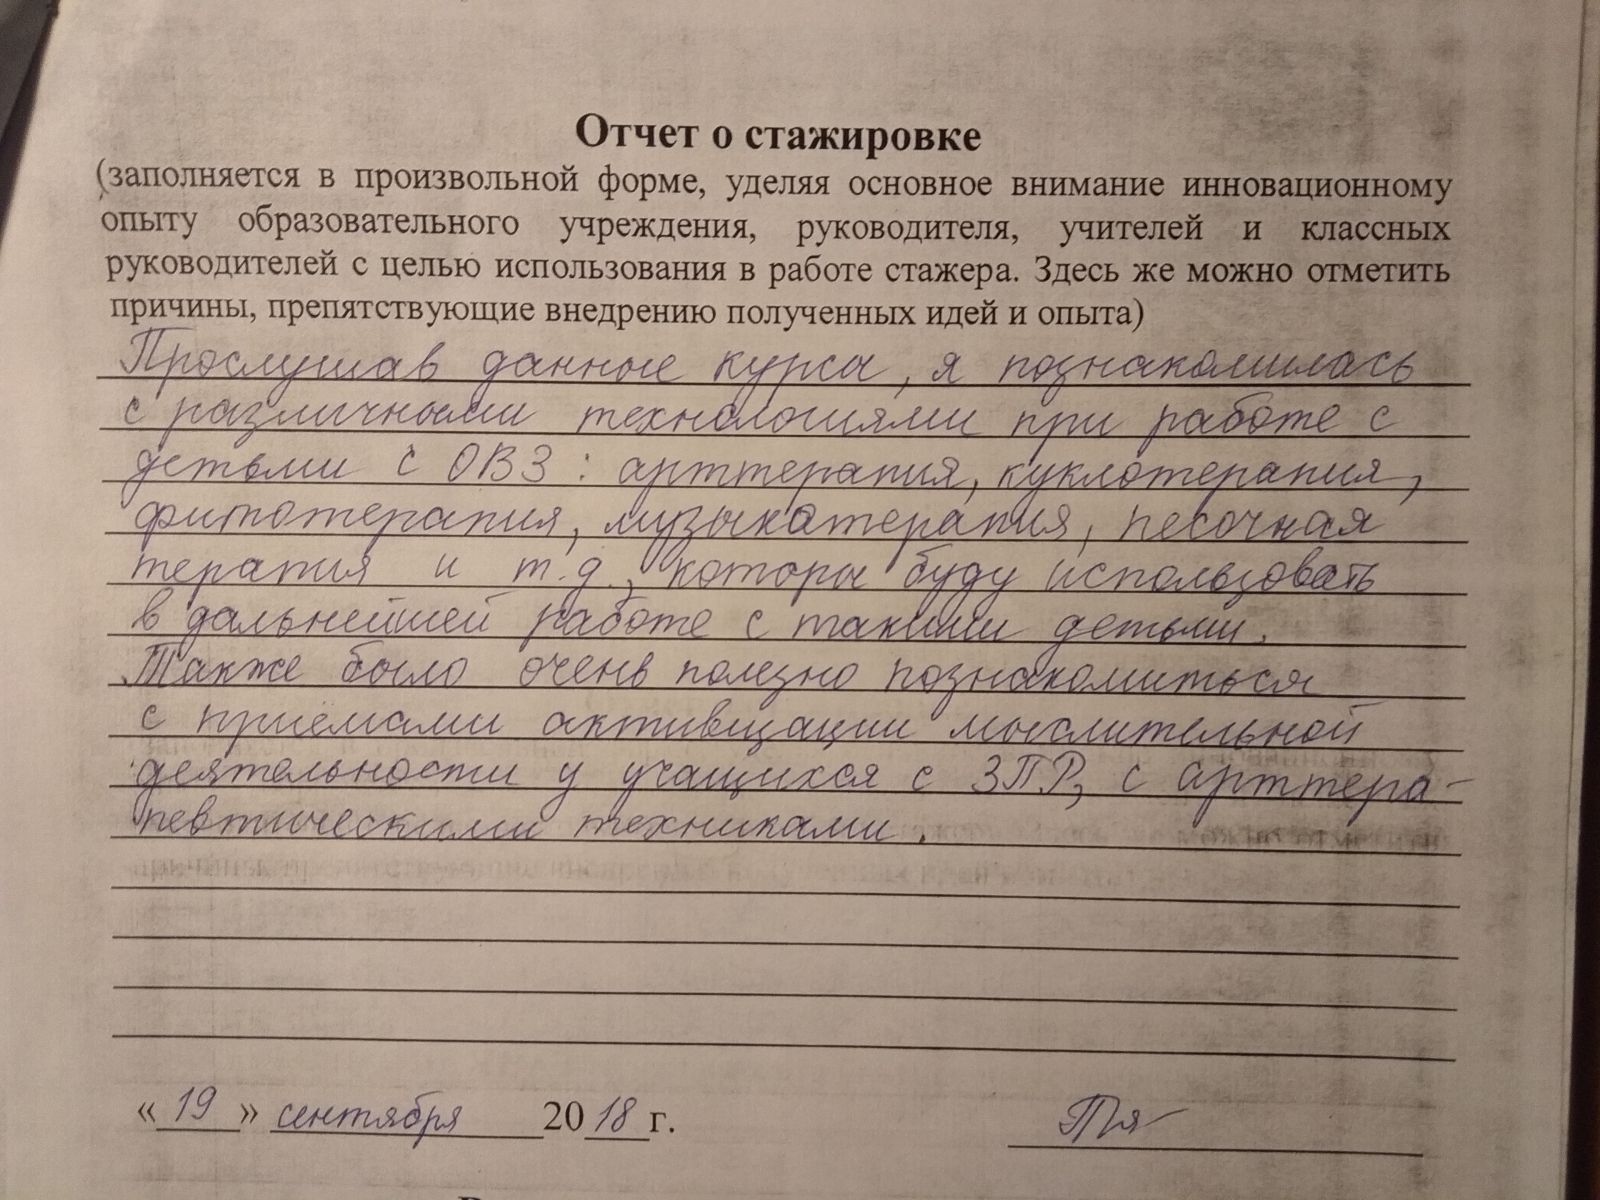 Отчет о стажировке
(заполняется в произвольной форме, уделяя основное внимание инновационному
опыту образовательного учреждения, руководителя, учителей и классных
руководителей с целью использования в работе стажера. Здесь же можно отметить
причины, препятствующие внедрению полученных идей и опыта)
Прослушав данные курсы, я познакомилась
с различными технологиями при работе с
детьми с ОВЗ: арттерапия, куклотерапия,
фитотерапия, музыкатерапия, песочная
терапия и т.д., которы буду использовать
в дальнейшей работе с такими детьми.
Также было очень полезно познакомиться
с приёмами активизации мыслительной
деятельности у учащихся с ЗПР, с арттера-
певтическими техниками.
«19» сентября 2018 г.